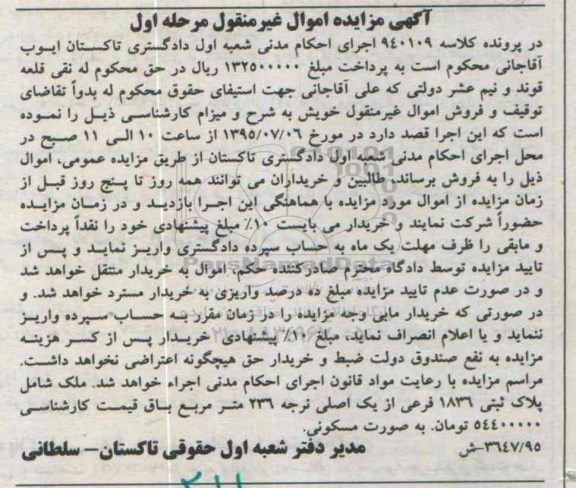 آگهی مزایده اموال غیرمنقول مرحله اول
در پرونده کلاسه ۹۴۰۱۰۹ اجرای احکام مدنی شعبه اول دادگستری تاکستان ایوب
آقاجانی محکوم است به پرداخت مبلغ ۱۳۲۵۰۰۰۰۰ ریال در حق محکوم له نقی قلعه
قوند و نیم عشر دولتی که علی آقاجانی جهت استیفای حقوق محکوم له بدواً تقاضای
توقیف و فروش اموال غیرمنقول خویش به شرح و میزام کارشناسی ذیل را نموده
است که این اجرا قصد دارد در مورخ ۱۳۹۵/۰۷/۰۶ از ساعت ۱۰ الی ۱۱ صبح در
محل اجرای احکام مدنی شعبه اول دادگستری تاکستان از طریق مزایده عمومی، اموال
ذیل را به فروش برساند، طالبین و خریداران می توانند همه روز تا پنج روز قبل از
زمان مزایده از اموال مورد مزایده با هماهنگی این اجرا بازدید و در زمان مزایده
حضوراً شرکت نمایند و خریدار می بایست ۱۰٪ مبلغ پیشنهادی خود را نقداً پرداخت
و مابقی را ظرف مهلت یک ماه به حساب سپرده دادگستری واریز نماید و پس از
تایید مزایده توسط دادگاه محترم صادرکننده حکم، اموال به خریدار منتقل خواهد شد
و در صورت عدم تایید مزایده مبلغ ده درصد واریزی به خریدار مسترد خواهد شد. و
در صورتی که خریدار مابی وجه مزایده را در زمان مقرر به حساب سپرده واریز
ننماید و یا اعلام انصراف نماید، مبلغ ۱۰٪ پیشنهادی خریدار پس از کسر هزینه
مزایده به نفع صندوق دولت ضبط و خریدار حق هیچگونه اعتراضی نخواهد داشت.
مراسم مزایده با رعایت مواد قانون اجرای احکام مدنی اجراء خواهد شد. ملک شامل
پلاک ثبتی ۱۸۳۶ فرعی از یک اصلی نرجه ۲۳۶ متر مربع باق قیمت کارشناسی
۵۴۴۰۰۰۰۰ تومان. به صورت مسکونی.
۳۶۴۷/۹۵-ش مدیر دفتر شعبه اول حقوقی تاکستان – سلطانی
۲۱۱